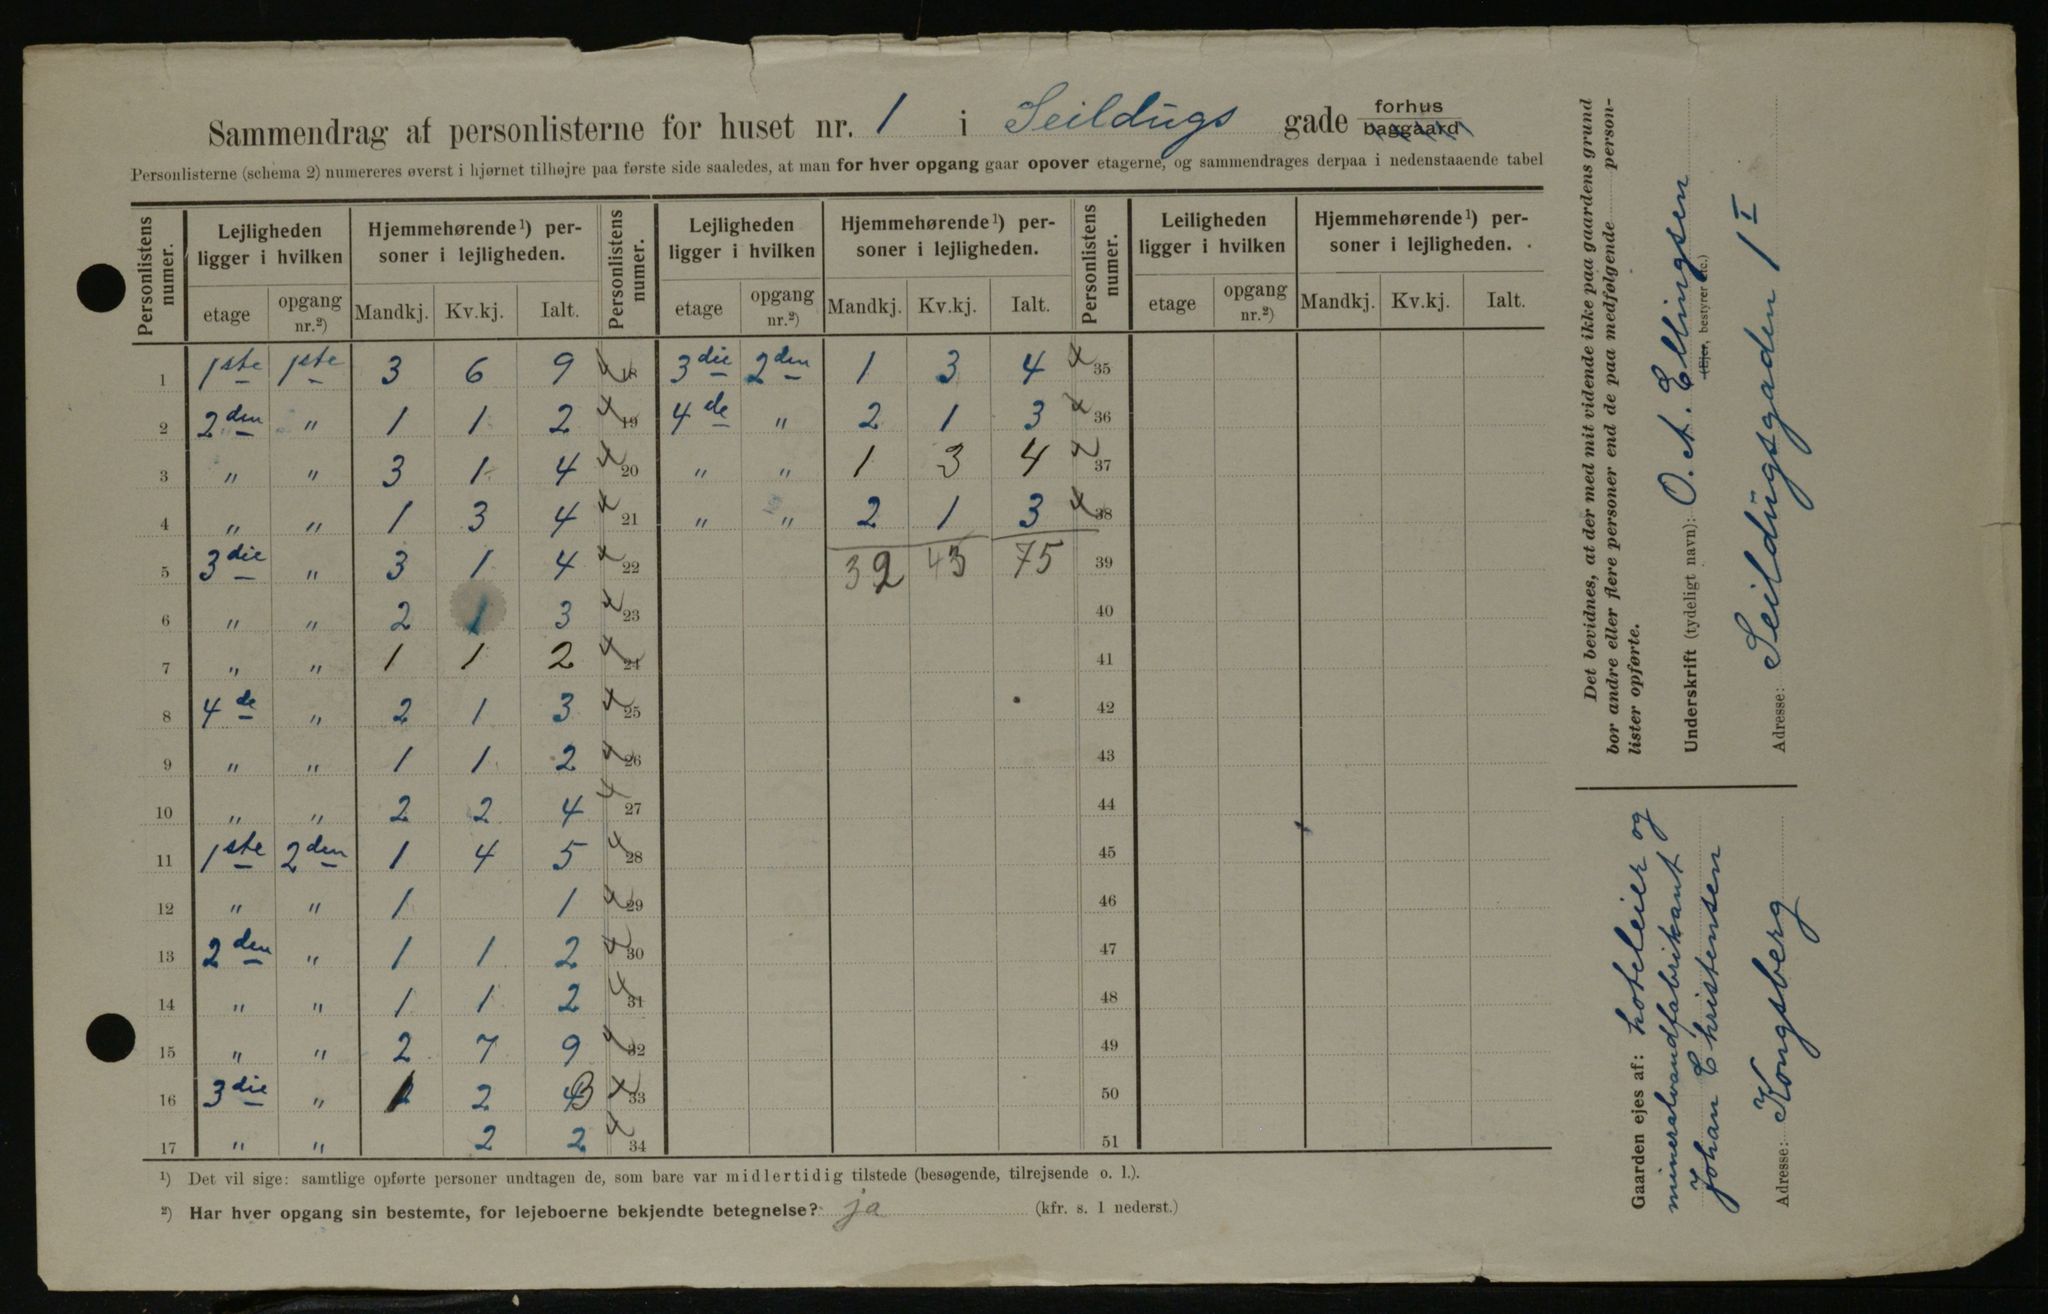 Sammendrag af personlisterne for huset nr. 1 i Seildugs gade forhus baggaard
Personlisterne (schema 2) numereres øverst i hjørnet tilhøjre paa første side saaledes, at man for hver opgang gaar opover etagerne, og sammendrages derpaa i nedenstaaende tabel
Personlistens numer. | Lejligheden ligger i hvilken | Hjemmehørende ¹) personer i lejligheden. | Personlistens numer. | Lejligheden ligger i hvilken | Hjemmehørende ¹) personer i lejligheden. | Personlistens numer. | Leiligheden ligger i hvilken | Hjemmehørende ¹) personer i lejligheden.
etage | opgang nr.²) | Mandkj. | Kv.kj. | Ialt. | etage | opgang nr.²) | Mandkj. | Kv.kj. | Ialt. | etage | opgang nr.²) | Mandkj. | Kv.kj. | Ialt.
1 | 1ste | 1ste | 3 | 6 | 9 | 18 | 3die | 2den | 1 | 3 | 4 | 35
2 | 2den | " | 1 | 1 | 2 | 19 | 4de | " | 2 | 1 | 3 | 36
3 | " | " | 3 | 1 | 4 | 20 | " | " | 1 | 3 | 4 | 37
4 | " | " | 1 | 3 | 4 | 21 | " | " | 2 | 1 | 3 | 38
5 | 3die | " | 3 | 1 | 4 | 22 | 32 | 43 | 75 | 39
6 | " | " | 2 | 1 | 3 | 23 | 40
7 | " | " | 1 | 1 | 2 | 24 | 41
8 | 4de | " | 2 | 1 | 3 | 25 | 42
9 | " | " | 1 | 1 | 2 | 26 | 43
10 | " | " | 2 | 2 | 4 | 27 | 44
11 | 1ste | 2den | 1 | 4 | 5 | 28 | 45
12 | " | " | 1 | | 1 | 29 | 46
13 | 2den | " | 1 | 1 | 2 | 30 | 47
14 | " | " | 1 | 1 | 2 | 31 | 48
15 | " | " | 2 | 7 | 9 | 32 | 49
16 | 3die | " | 1 | 2 | 3 | 33 | 50
17 | " | " | | 2 | 2 | 34 | 51
¹) Det vil sige: samtlige opførte personer undtagen de, som bare var midlertidig tilstede (besøgende, tilrejsende o. l.).
²) Har hver opgang sin bestemte, for lejeboerne bekjendte betegnelse? ja (kfr. s. 1 nederst.)
Det bevidnes, at der med mit vidende ikke paa gaardens grund
bor andre eller flere personer end de paa medfølgende person-
lister opførte.
Underskrift (tydeligt navn): O. A. Ellingsen
(Ejer, bestyrer etc.)
Adresse: Seildugsgaden 1 I
Gaarden ejes af: hoteleier og
mineralvandfabrikant
Johan Christensen
Adresse: Kongsberg